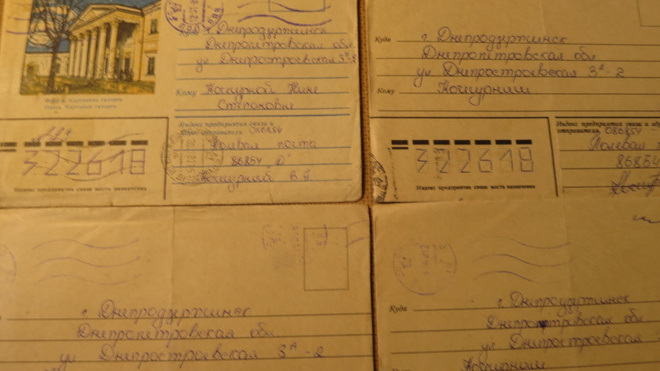 г Днепродзержинск
Днепропетровская обл
ул Днепростроевская 3А-2
Кому
Нине
Степановне
Индекс предприятия связи и адрес
отправителя 086854
Полевая почта
86854 „О"
В.Я.
322618
Индекс предприятия связи места назначения
Куда
г. Днепродзержинск
Днепропетровская обл
ул Днепростроевская 3А-2
Кому
Индекс предприятия связи и
отправителя 086854
Полевая
86854
322618
Индекс предприятия связи места назначения
г. Днепродзержинск
Днепропетровская обл
ул Днепростроевская 3А-2
Куда
г Днепродзержинск
Днепропетровская обл
ул Днепростроевская